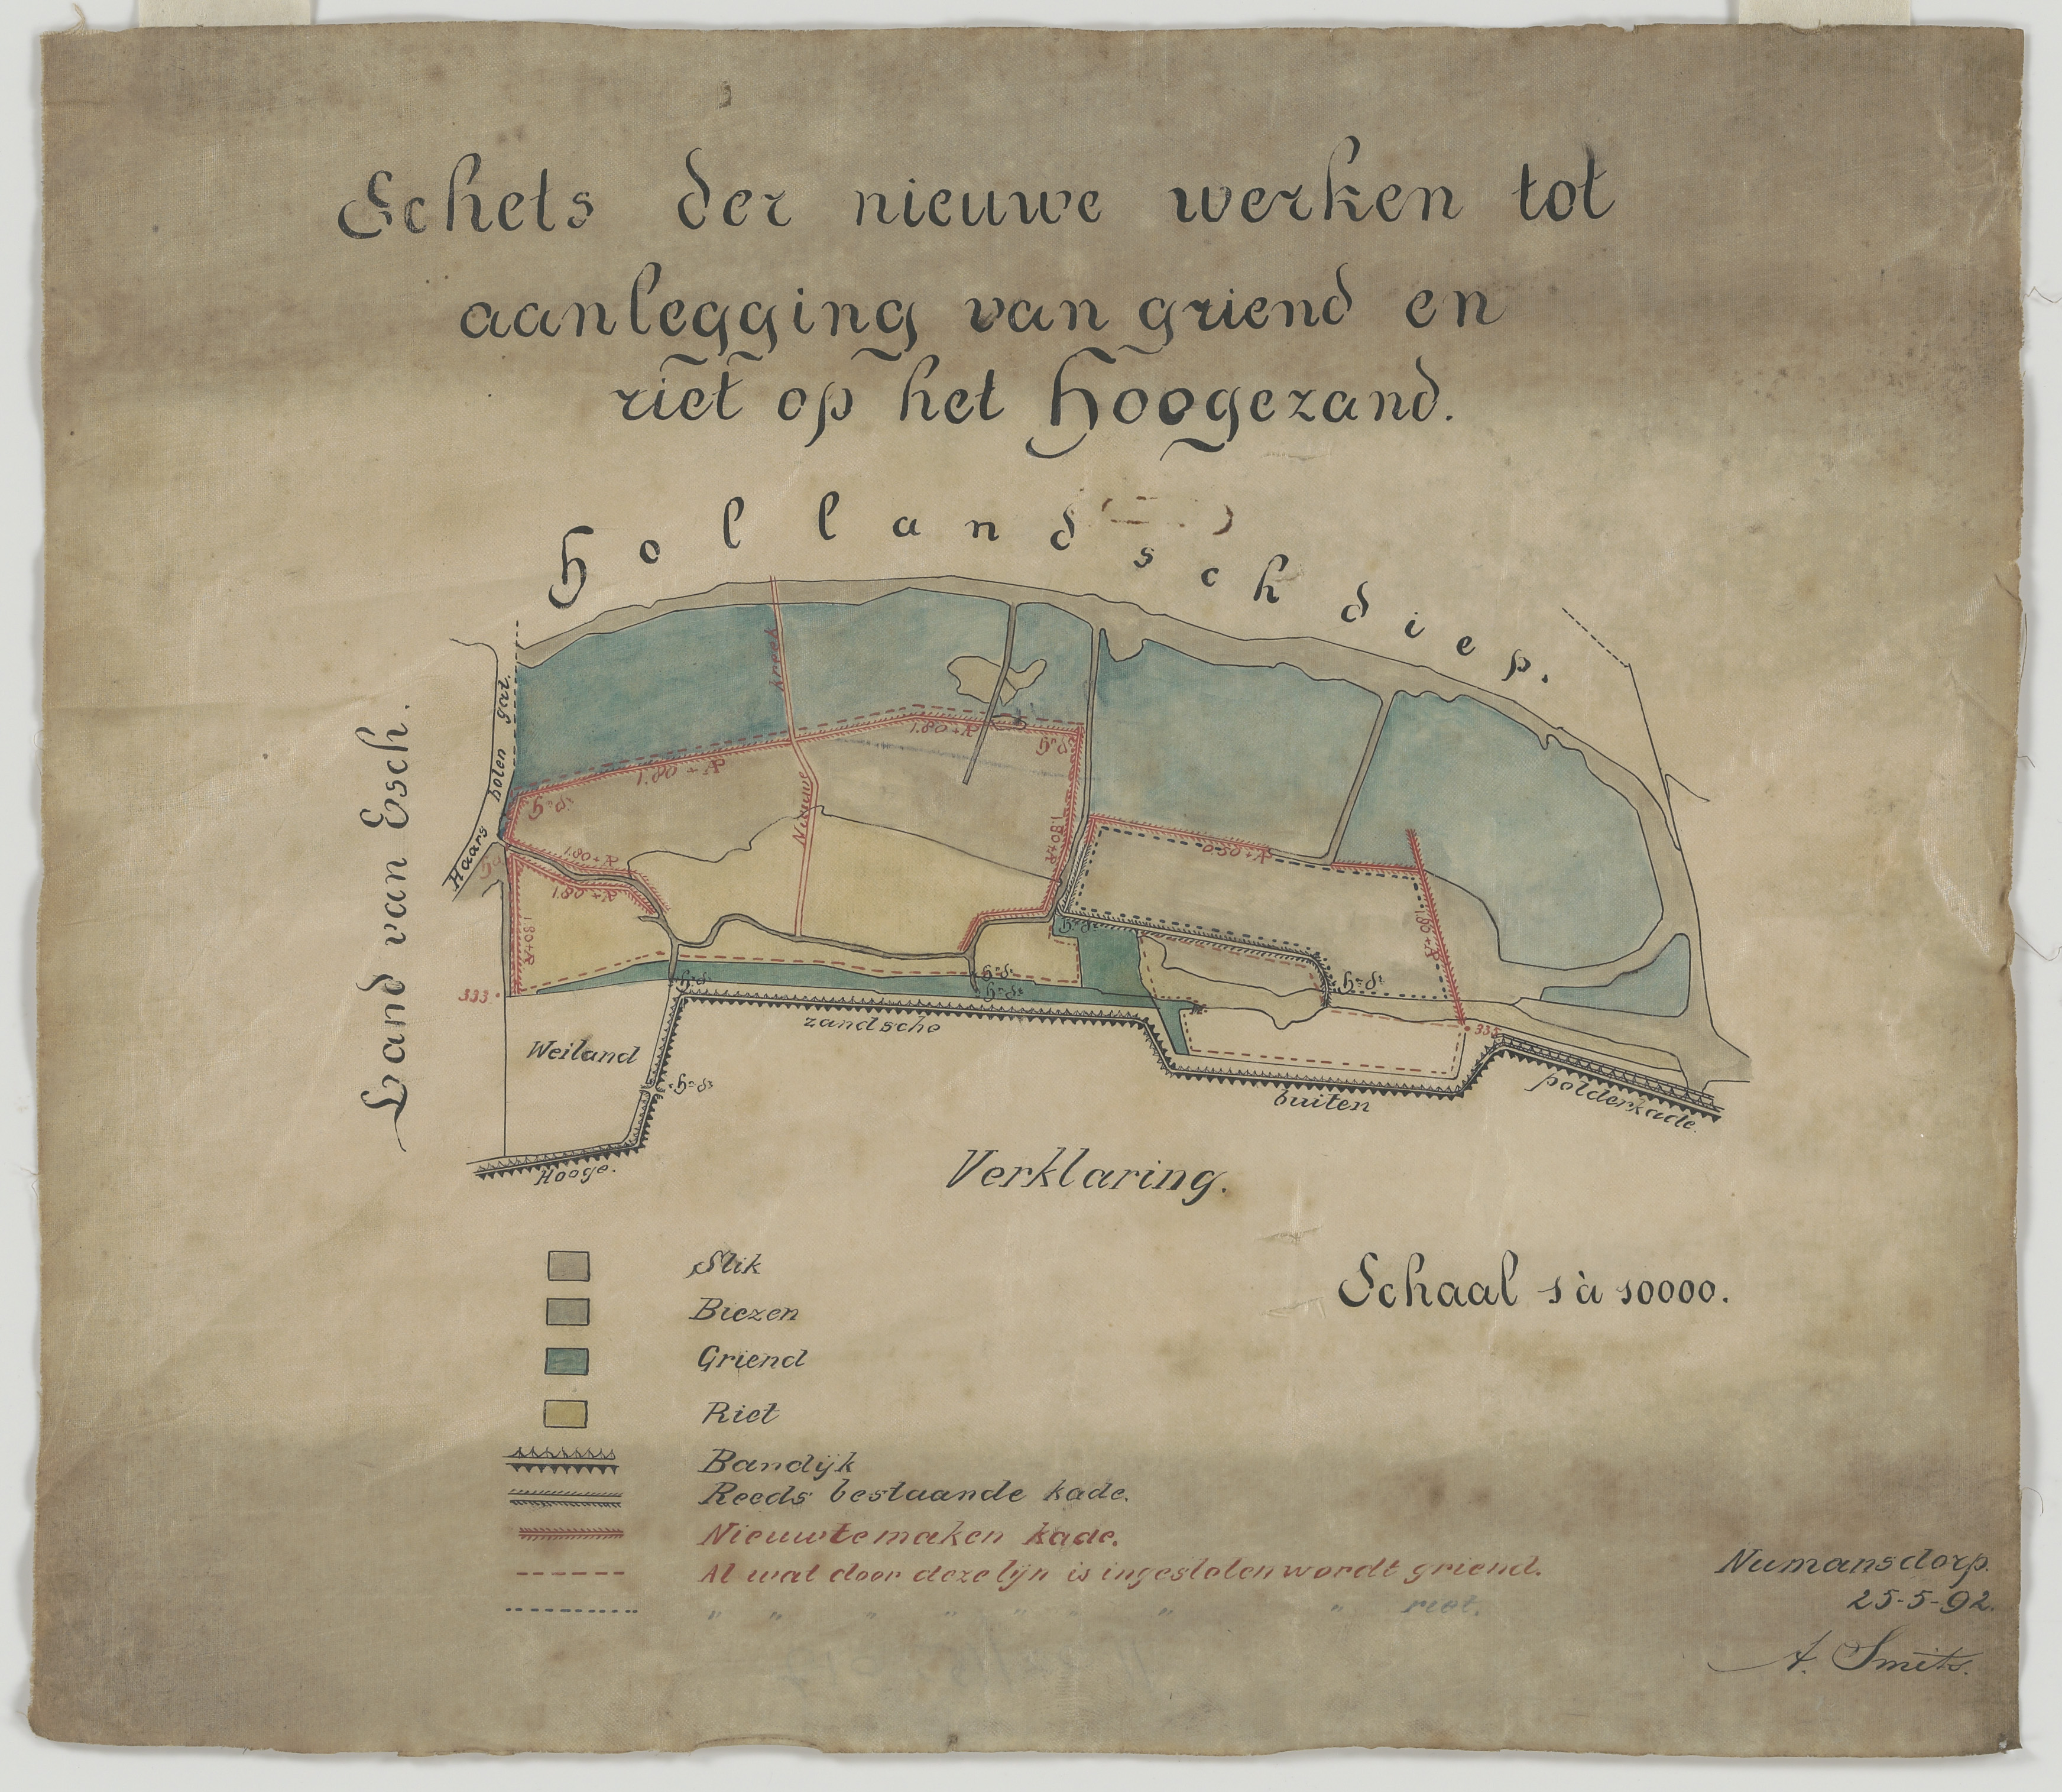 Schets der nieuwe werken tot
aanlegging van griend en
riet op het Hoogezand.
Hollandsch diep.
Land van Essch.
Haars holen gat.
kreek
Nieuwe
1.80 + R
1.80 + R
1.80 + R
1.80 + R
1.80 + R
1.80 + R
0.50 + R
1.80 + R
333
335
Weiland
zandsche
buiten
polderkade.
Hooge.
Verklaring.
Slik
Biezen
Griend
Riet
Bandijk
Reeds bestaande kade.
Nieuw te maken kade.
Al wat door deze lijn is ingesloten wordt griend.
" " " " " " " " riet.
Schaal 1 à 10000.
Numansdorp.
25-5-92.
A. Smits.